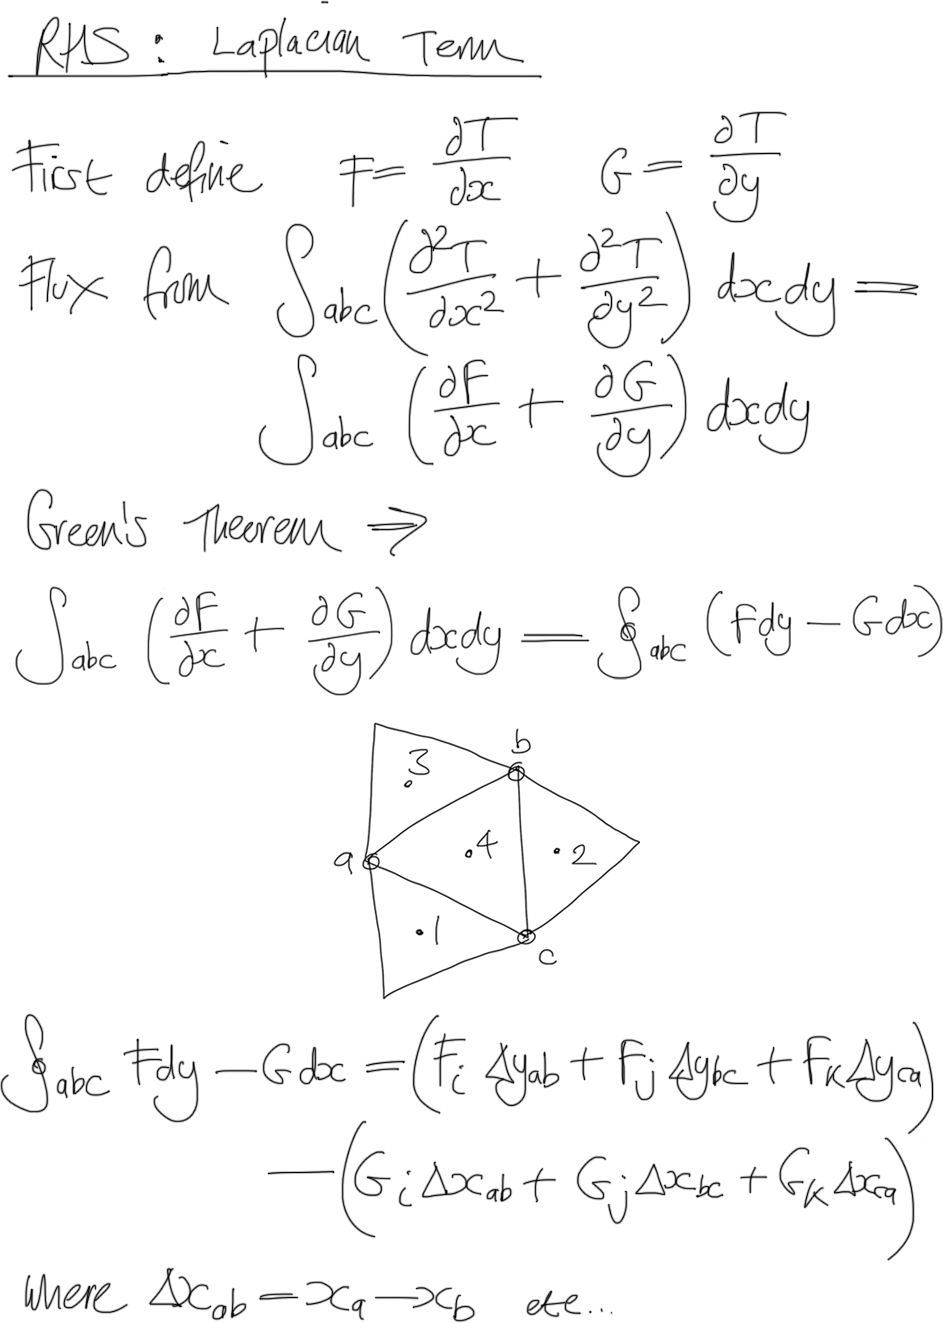 RHS: Laplacian Term
First define F = ∂T/∂x G = ∂T/∂y
Flux from ∫abc (∂²T/∂x² + ∂²T/∂y²) dxdy =
∫abc (∂F/∂x + ∂G/∂y) dxdy
Green's Theorem ⇒
∫abc (∂F/∂x + ∂G/∂y) dxdy = ∮abc (Fdy − Gdx)
b
3
a
4
2
1
c
∮abc Fdy − Gdx = (Fi Δyab + Fj Δybc + Fk Δyca)
− (Gi Δxab + Gj Δxbc + Gk Δxca)
where Δxab = xa → xb etc...